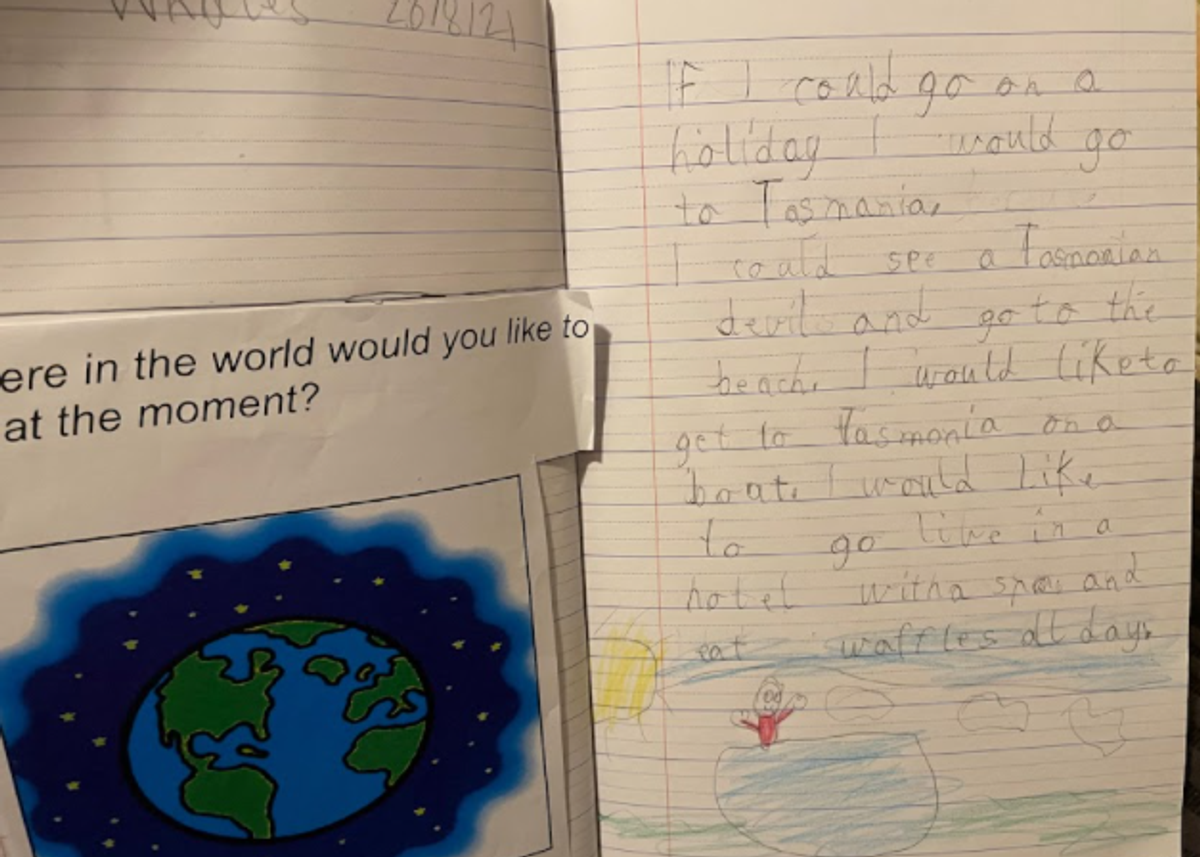 26/8/21
ere in the world would you like to
at the moment?
If I could go on a
holiday I would go
to Tasmania.
I could see a Tasmanian
devil and go to the
beach. I would like to
get to Tasmania on a
boat. I would like
to go live in a
hotel with a spa and
eat waffles all day.